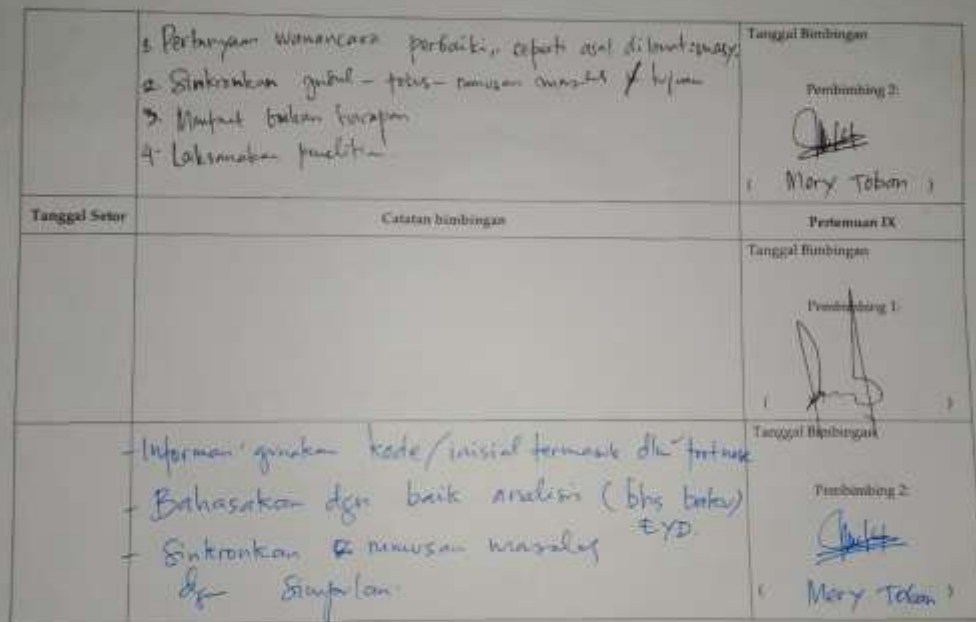 1. Pertanyaan wawancara perbaiki,, seperti asal
2. Sinkronkan judul - fokus - rumusan masalah / tujuan
3. Manfaat bukan harapan
4- Laksanakan penelitian
Tanggal Bimbingan
Pembimbing 2:
( Mery Toban )
Tanggal Setor
Catatan bimbingan
Pertemuan IX
Tanggal Bimbingan
Pembimbing 1:
( )
- Informan gunakan kode/inisial termasuk dlm footnote
- Bahasakan dgn baik analisis (bhs baku)
EYD.
- Sinkronkan rumusan masalah
dgn Simpulan.
Tanggal Bimbingan
Pembimbing 2:
( Mery Toban )